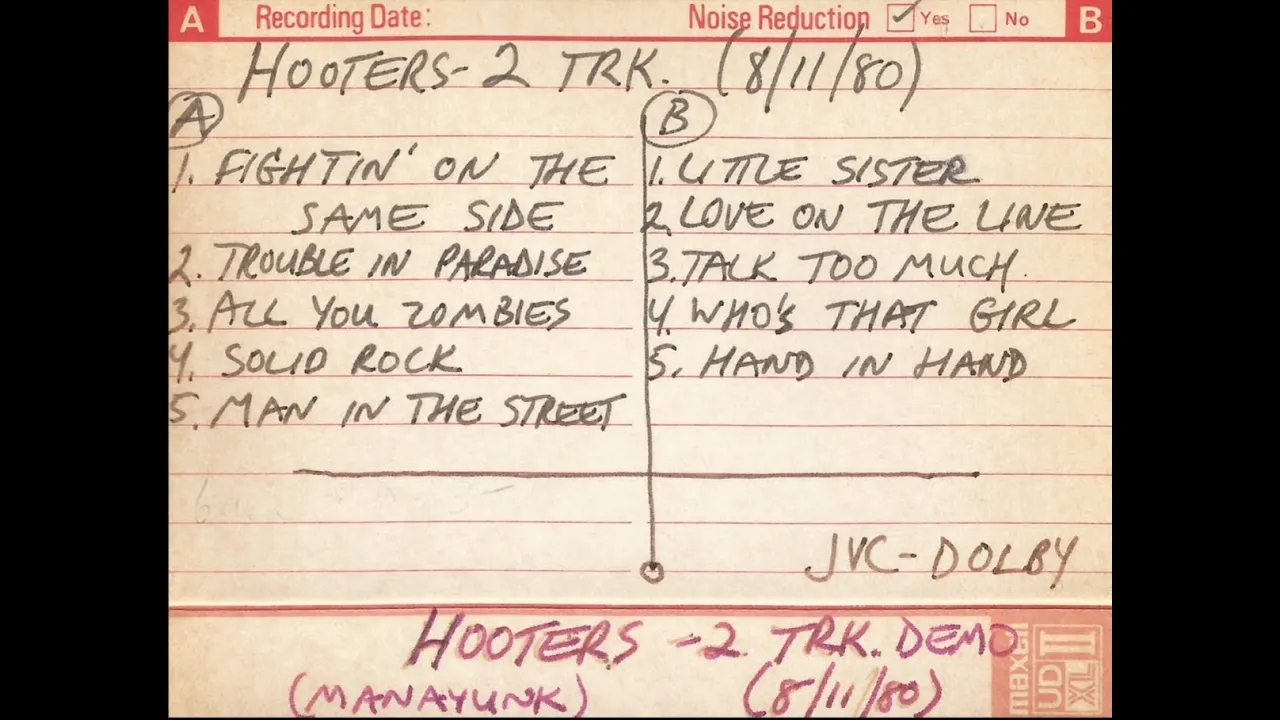 A Recording Date: Noise Reduction Yes No B
HOOTERS - 2 TRK. (8/11/80)
A
1. FIGHTIN' ON THE
SAME SIDE
2. TROUBLE IN PARADISE
3. ALL YOU ZOMBIES
4. SOLID ROCK
5. MAN IN THE STREET
B
1. LITTLE SISTER
2. LOVE ON THE LINE
3. TALK TOO MUCH.
4. WHO'S THAT GIRL
5. HAND IN HAND
JVC - DOLBY
HOOTERS - 2 TRK. DEMO
(MANAYUNK) (8/11/80)
maxell UD XL II